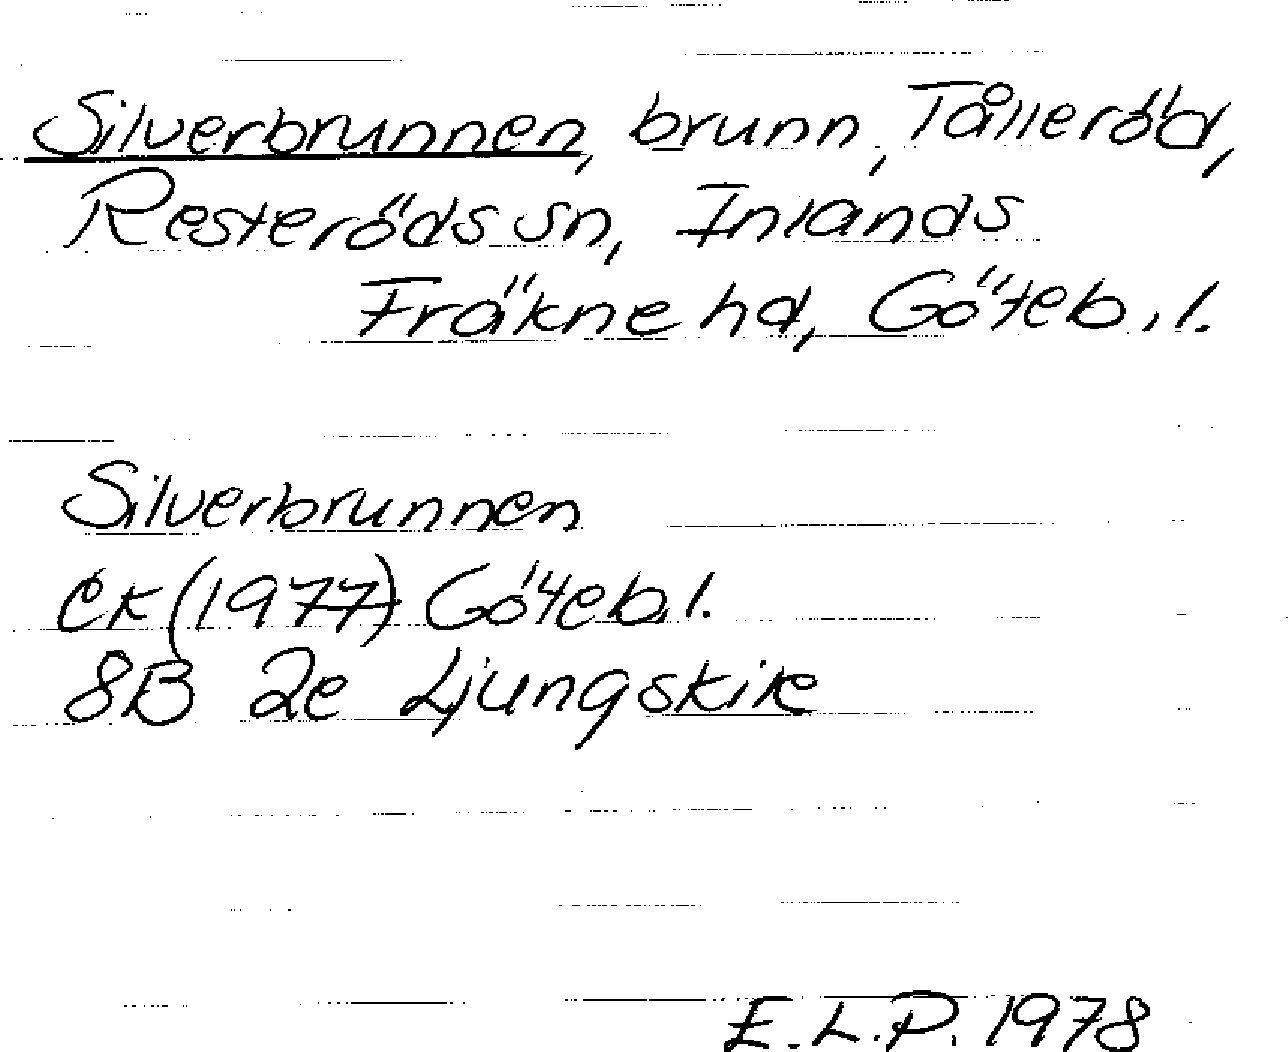 Silverbrunnen, brunn, Tålleröd,
Resteröds sn, Inlands
Fräkne hd, Göteb. l.
Silverbrunnen
EK (1977) Göteb. l.
8B 2e Ljungskile
E.L.P. 1978